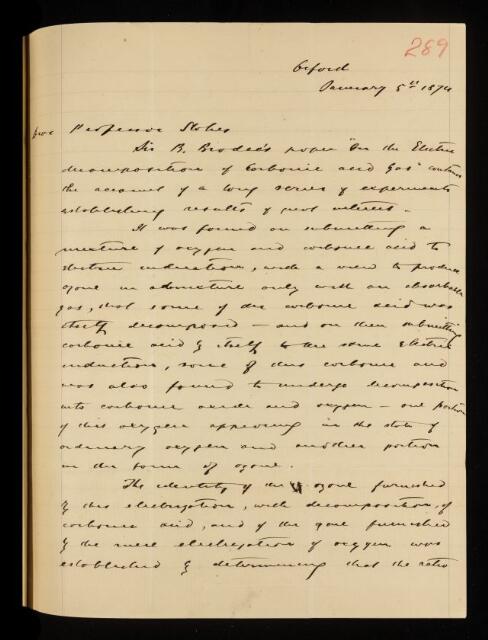 289
Oxford
January 5th 1874
Professor Stokes
Sir B. Brodie's paper "On the Electric
decomposition of Carbonic acid Gas" contains
the account of a long series of experiments
establishing results of great interest.
It was found on submitting a
mixture of oxygen and carbonic acid to
electric induction, with a view to produce
ozone in admixture only with an absorbable
gas, that some of the carbonic acid was
itself decomposed – and on then submitting
carbonic acid by itself to the same Electric
induction, some of this carbonic acid
was also found to undergo decomposition
into carbonic oxide and oxygen – one portion
of this oxygen appearing in the state of
ordinary oxygen and another portion
in the form of ozone.
The identity of the ozone furnished
by this electrization, with decomposition, of
carbonic acid, and of the ozone furnished
by the mere electrization of oxygen was
established by determining that the ratio